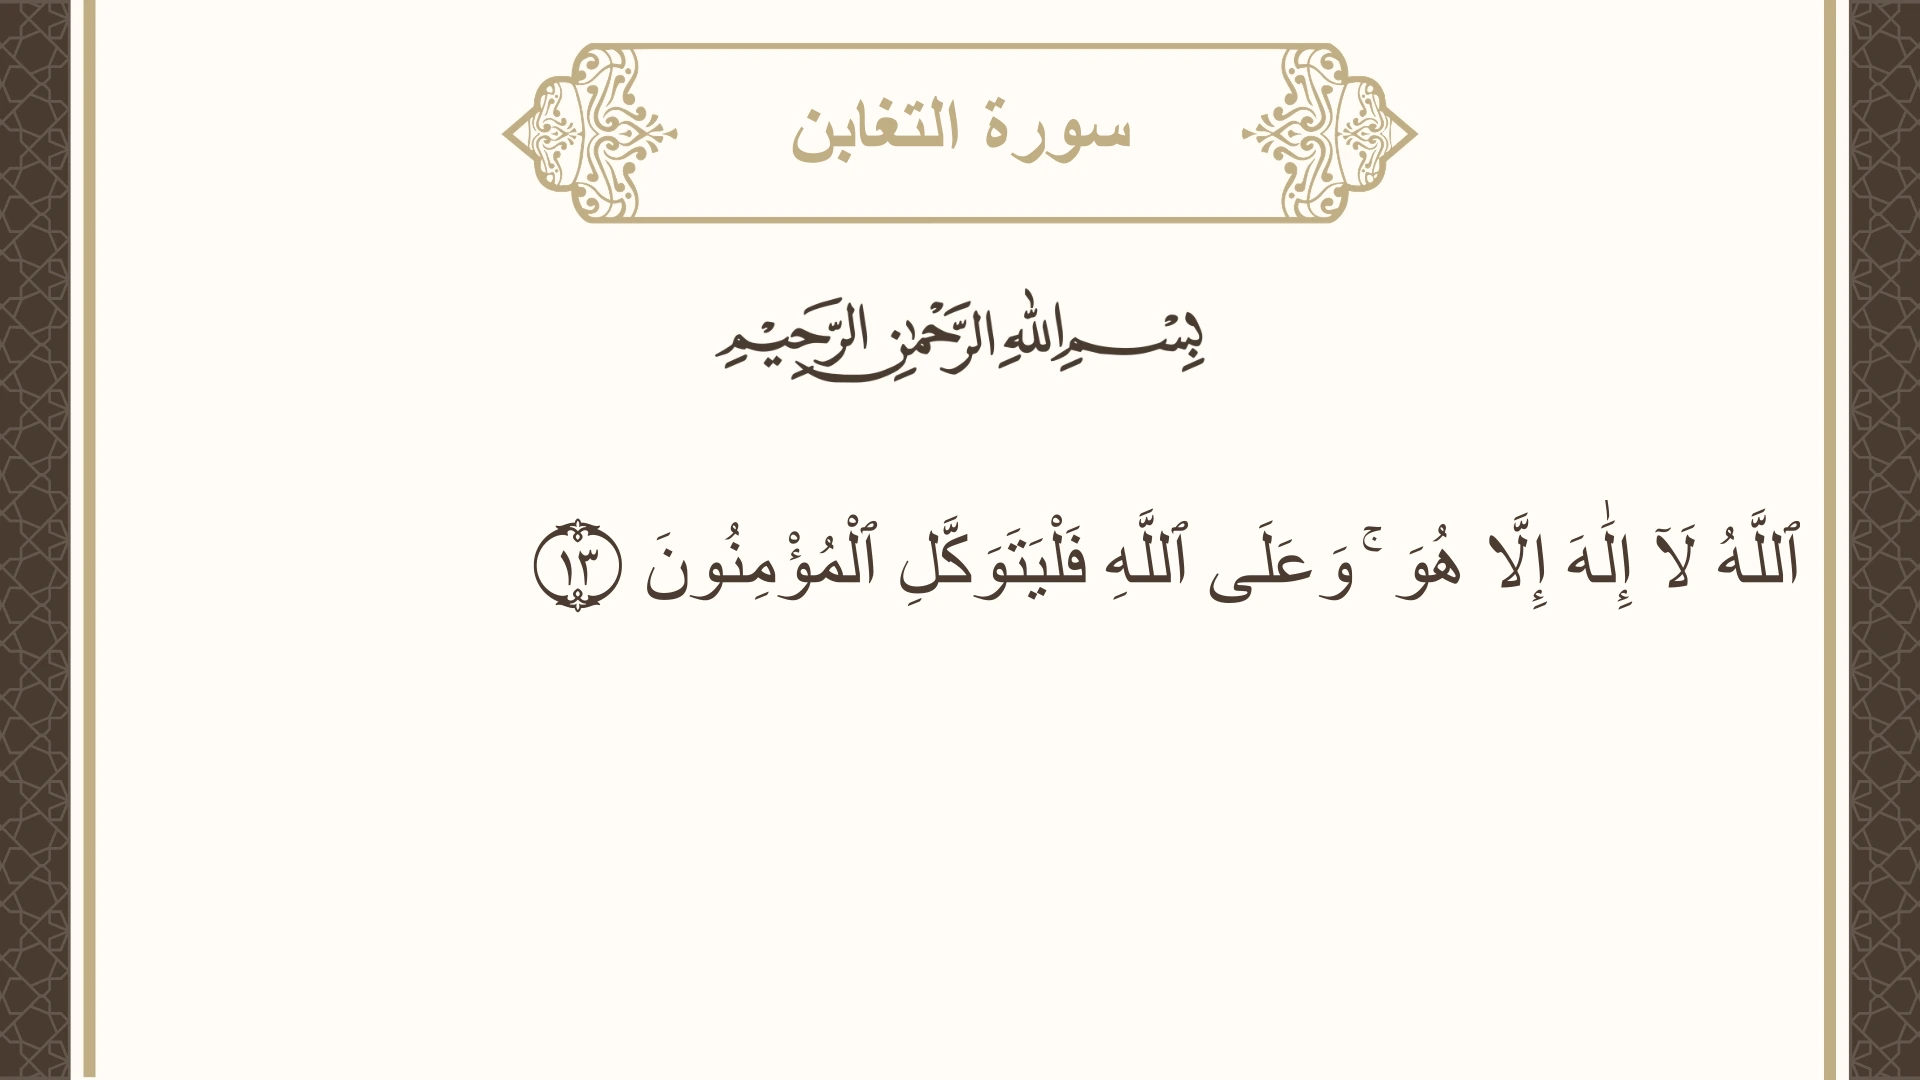 سورة التغابن
بِسْمِ اللهِ الرَّحْمٰنِ الرَّحِيْمِ
ٱللَّهُ لَآ إِلَٰهَ إِلَّا هُوَ ۚ وَعَلَى ٱللَّهِ فَلْيَتَوَكَّلِ ٱلْمُؤْمِنُونَ ١٣